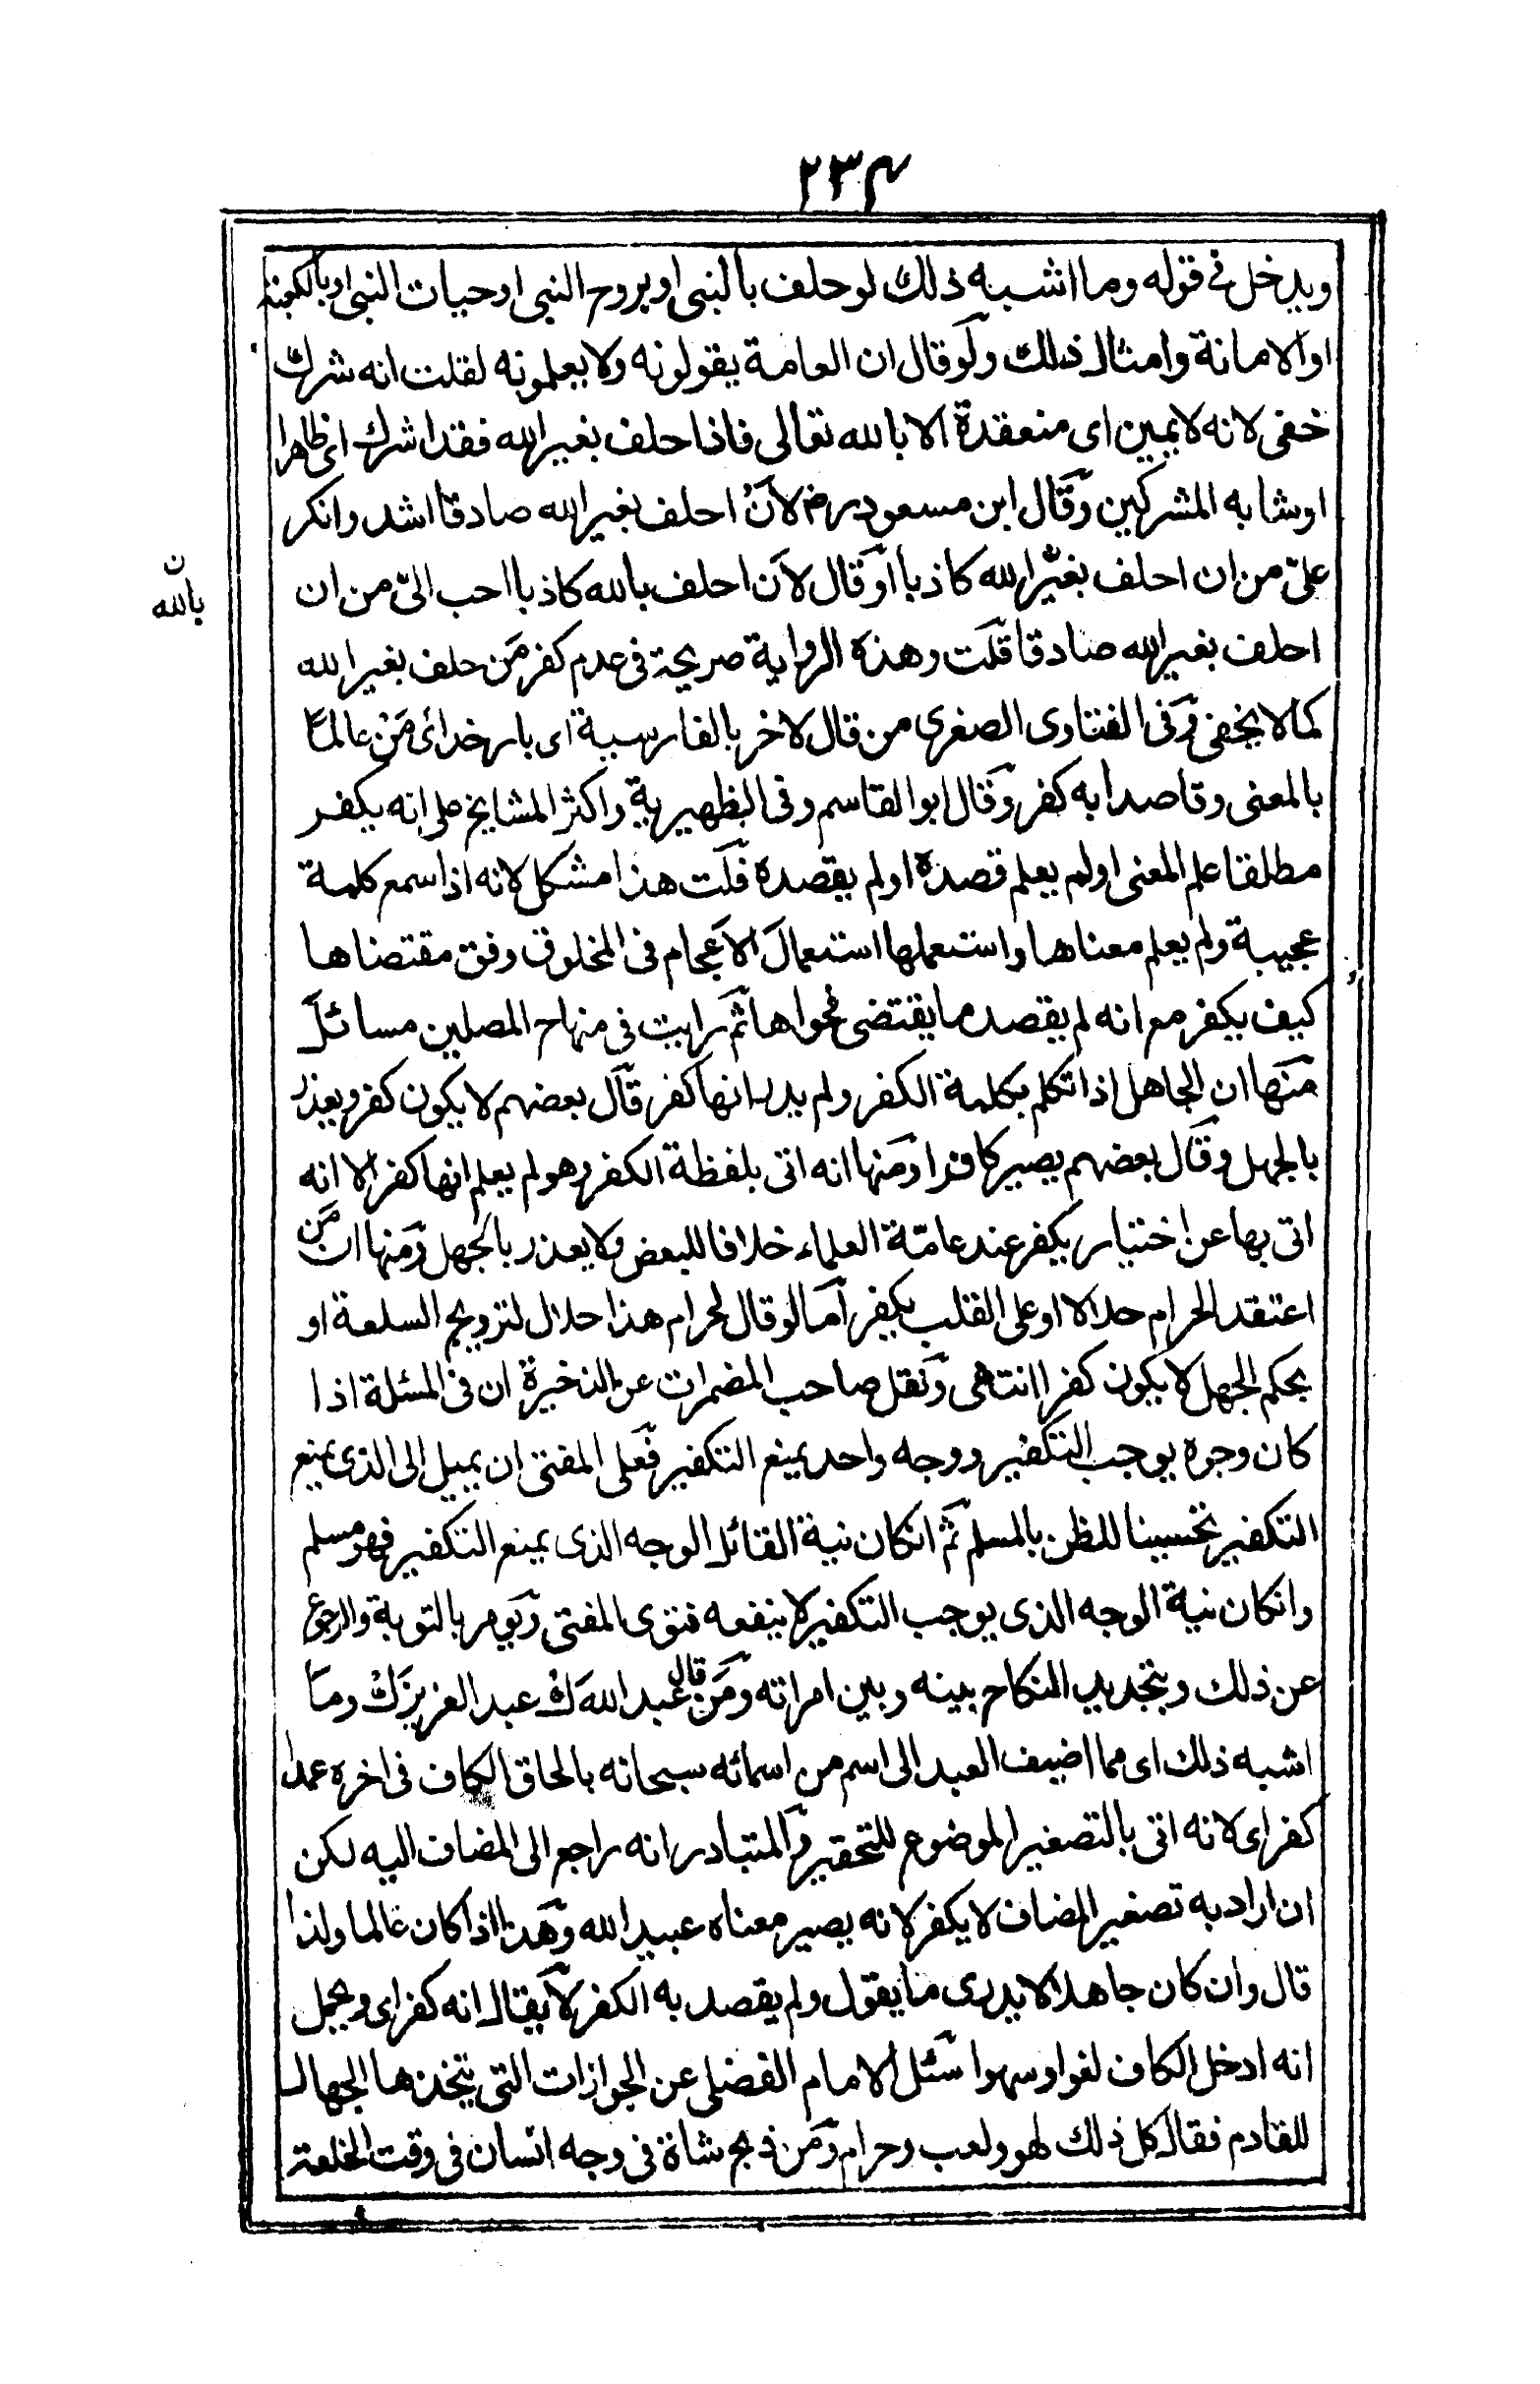 ٢٣٤
ويدخل في قوله وما اشبه ذلك لو حلف بالنبى او بروح النبى او حيات النبى او بالكعبة
او الامانة وامثال ذلك ولو قال ان العامة يقولونه ولا يعلمونه لقلت انه شرك
خفى لانه لا يمين اى منعقدة الا بالله تعالى فاذا حلف بغير الله فقد اشرك اى ظاهرا
او شابه المشركين وقال ابن مسعود رض لان احلف بغير الله صادقا اشد وانكر
علىّ من ان احلف بغير الله كاذبا او قال لان احلف بالله كاذبا احب الىّ من ان
ن
بالله
احلف بغير الله صادقا قلت وهذه الرواية صريحة فى عدم كفر من حلف بغير الله
كما لا يخفى وفى الفتاوى الصغرى من قال لاخر بالفارسية اى بار خداى من عالما
بالمعنى وقاصدا به كفر وقال ابو القاسم وفى الظهيرية واكثر المشايخ على انه يكفر
مطلقا علم المعنى او لم يعلم قصده او لم يقصده قلت هذا مشكل لانه اذا سمع كلمة
عجيبة ولم يعلم معناها واستعملها استعمال الاعجام فى المخلوق وفق مقتضاها
كيف يكفر مع انه لم يقصد ما يقتضى فحواها ثم رايت فى منهاج المصلين مسائل
منها ان الجاهل اذا تكلم بكلمة الكفر ولم يدر انها كفر قال بعضهم لا يكون كفر ويعذر
بالجهل وقال بعضهم يصير كافرا ومنها انه اتى بلفظة الكفر وهو لم يعلم انها كفر الا انه
اتى بها عن اختيار يكفر عند عامّة العلماء خلافا للبعض ولا يعذر بالجهل ومنها ان من
اعتقد الحرام حلالا او على القلب يكفر اما لو قال لحرام هذا حلال لترويج السلعة او
بحكم الجهل لا يكون كفرا انتهى ونقل صاحب المضمرات عن الذخيرة ان فى المسئلة اذا
كان وجوه يوجب التكفير ووجه واحد يمنع التكفير فعلى المفتى ان يميل الى الذى يمنع
التكفير تحسينا للظن بالمسلم ثم انكان نية القائل الوجه الذى يمنع التكفير فهو مسلم
وانكان نية الوجه الذى يوجب التكفير لا ينفعه فتوى المفتى ويومر بالتوبة والرجوع
عن ذلك وبتجديد النكاح بينه وبين امراته ومن قال عبد الله ك عبد العزيزك وما
اشبه ذلك اى مما اضيف العبد الى اسم من اسمائه سبحانه بالحاق الكاف فى اخره عمدا
كفر اى لانه اتى بالتصغير الموضوع للتحقير والمتبادر انه راجع الى المضاف اليه لكن
ان اراد به تصغير المضاف لا يكفر لانه يصير معناه عبيد الله وهذا اذا كان عالما ولذا
قال وان كان جاهلا لا يدرى ما يقول ولم يقصد به الكفر لا يقال انه كفر اى ويحمل
انه ادخل الكاف لغوا وسهوا سئل الامام الفضلى عن الجوازات التى يتخذها الجهال
للقادم فقال كل ذلك لهو ولعب وحرام ومن ذبح شاة فى وجه انسان فى وقت الخلعة